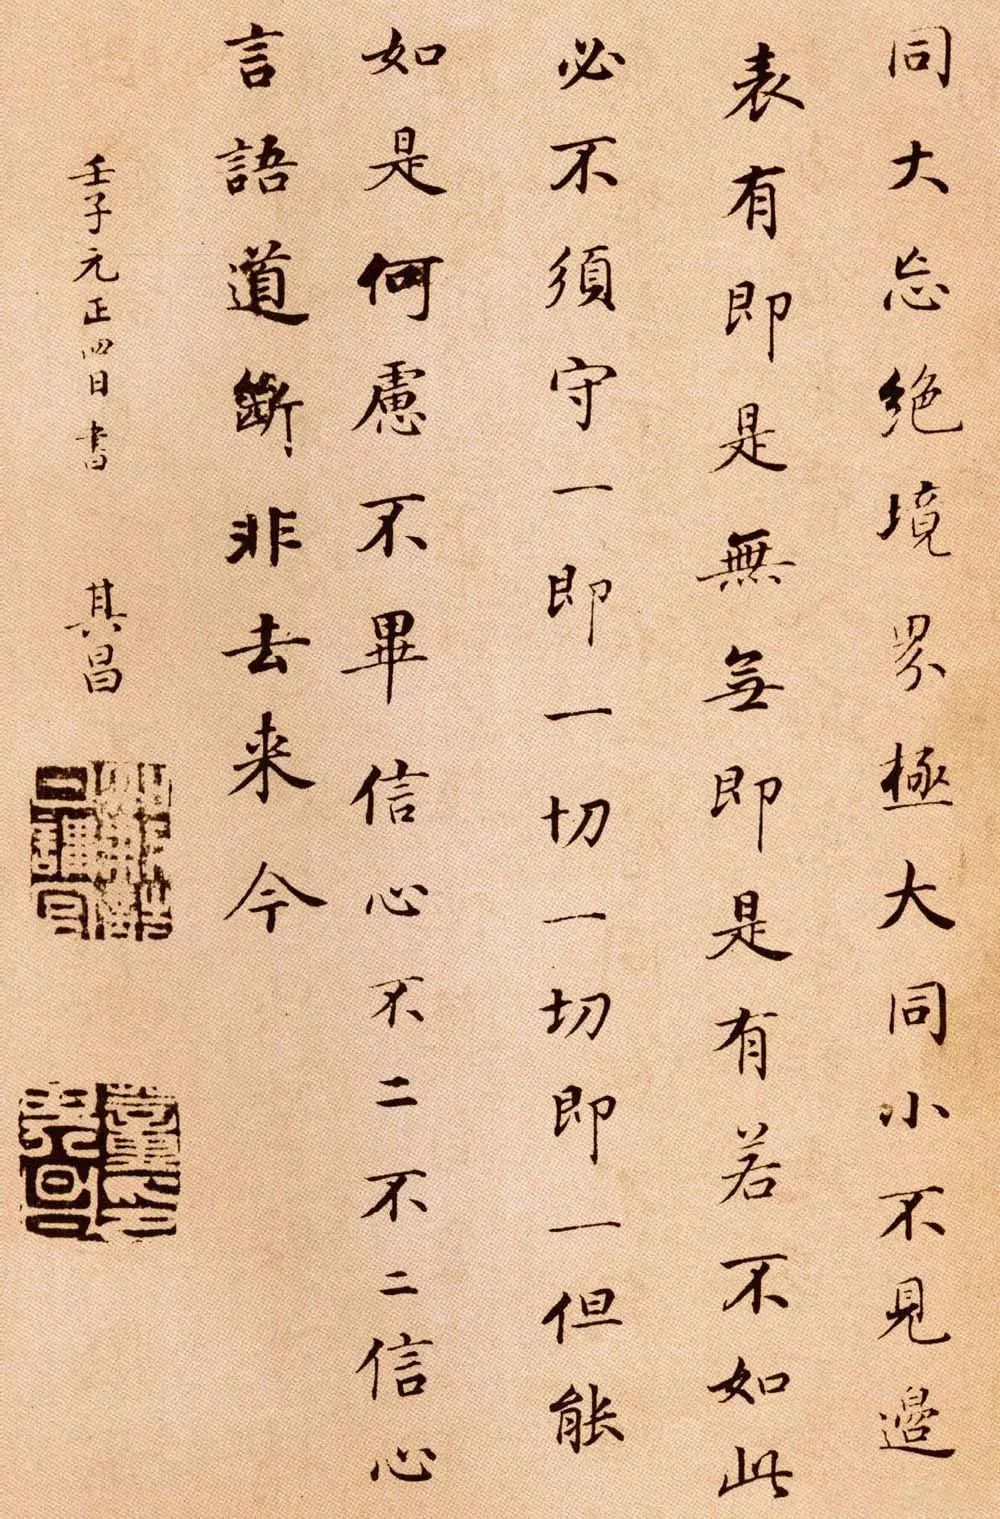 同大忘絶境界極大同小不見邊
表有即是無無即是有若不如此
必不須守一即一切一切即一但能
如是何慮不畢信心不二不二信心
言語道斷非去来今
壬子元正四日書 其昌